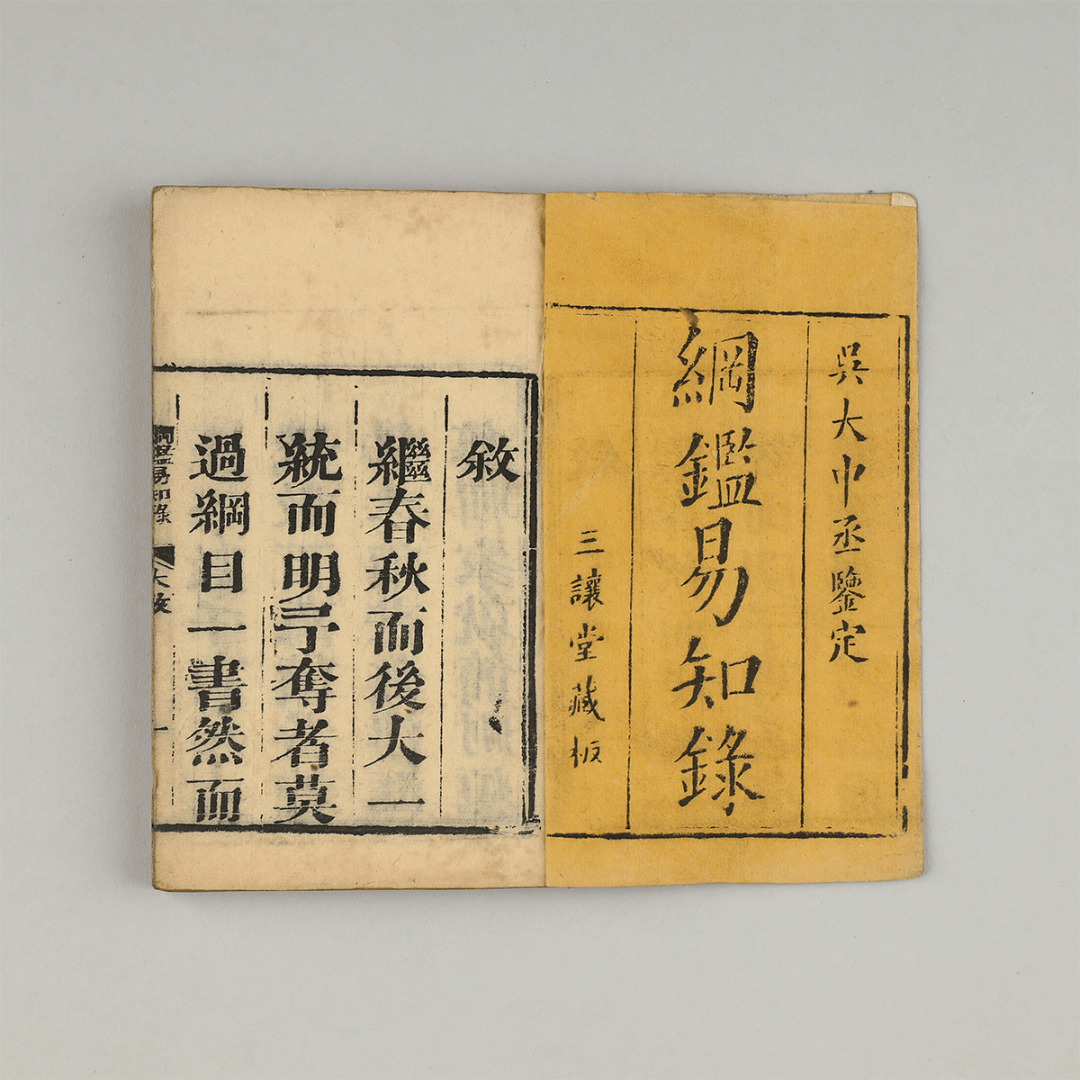 吳大中丞鑒定
綱鑑易知錄
三讓堂藏板
敘
繼春秋而後大一
統而明予奪者莫
過綱目一書然而
綱鑑易知錄 大敘 一